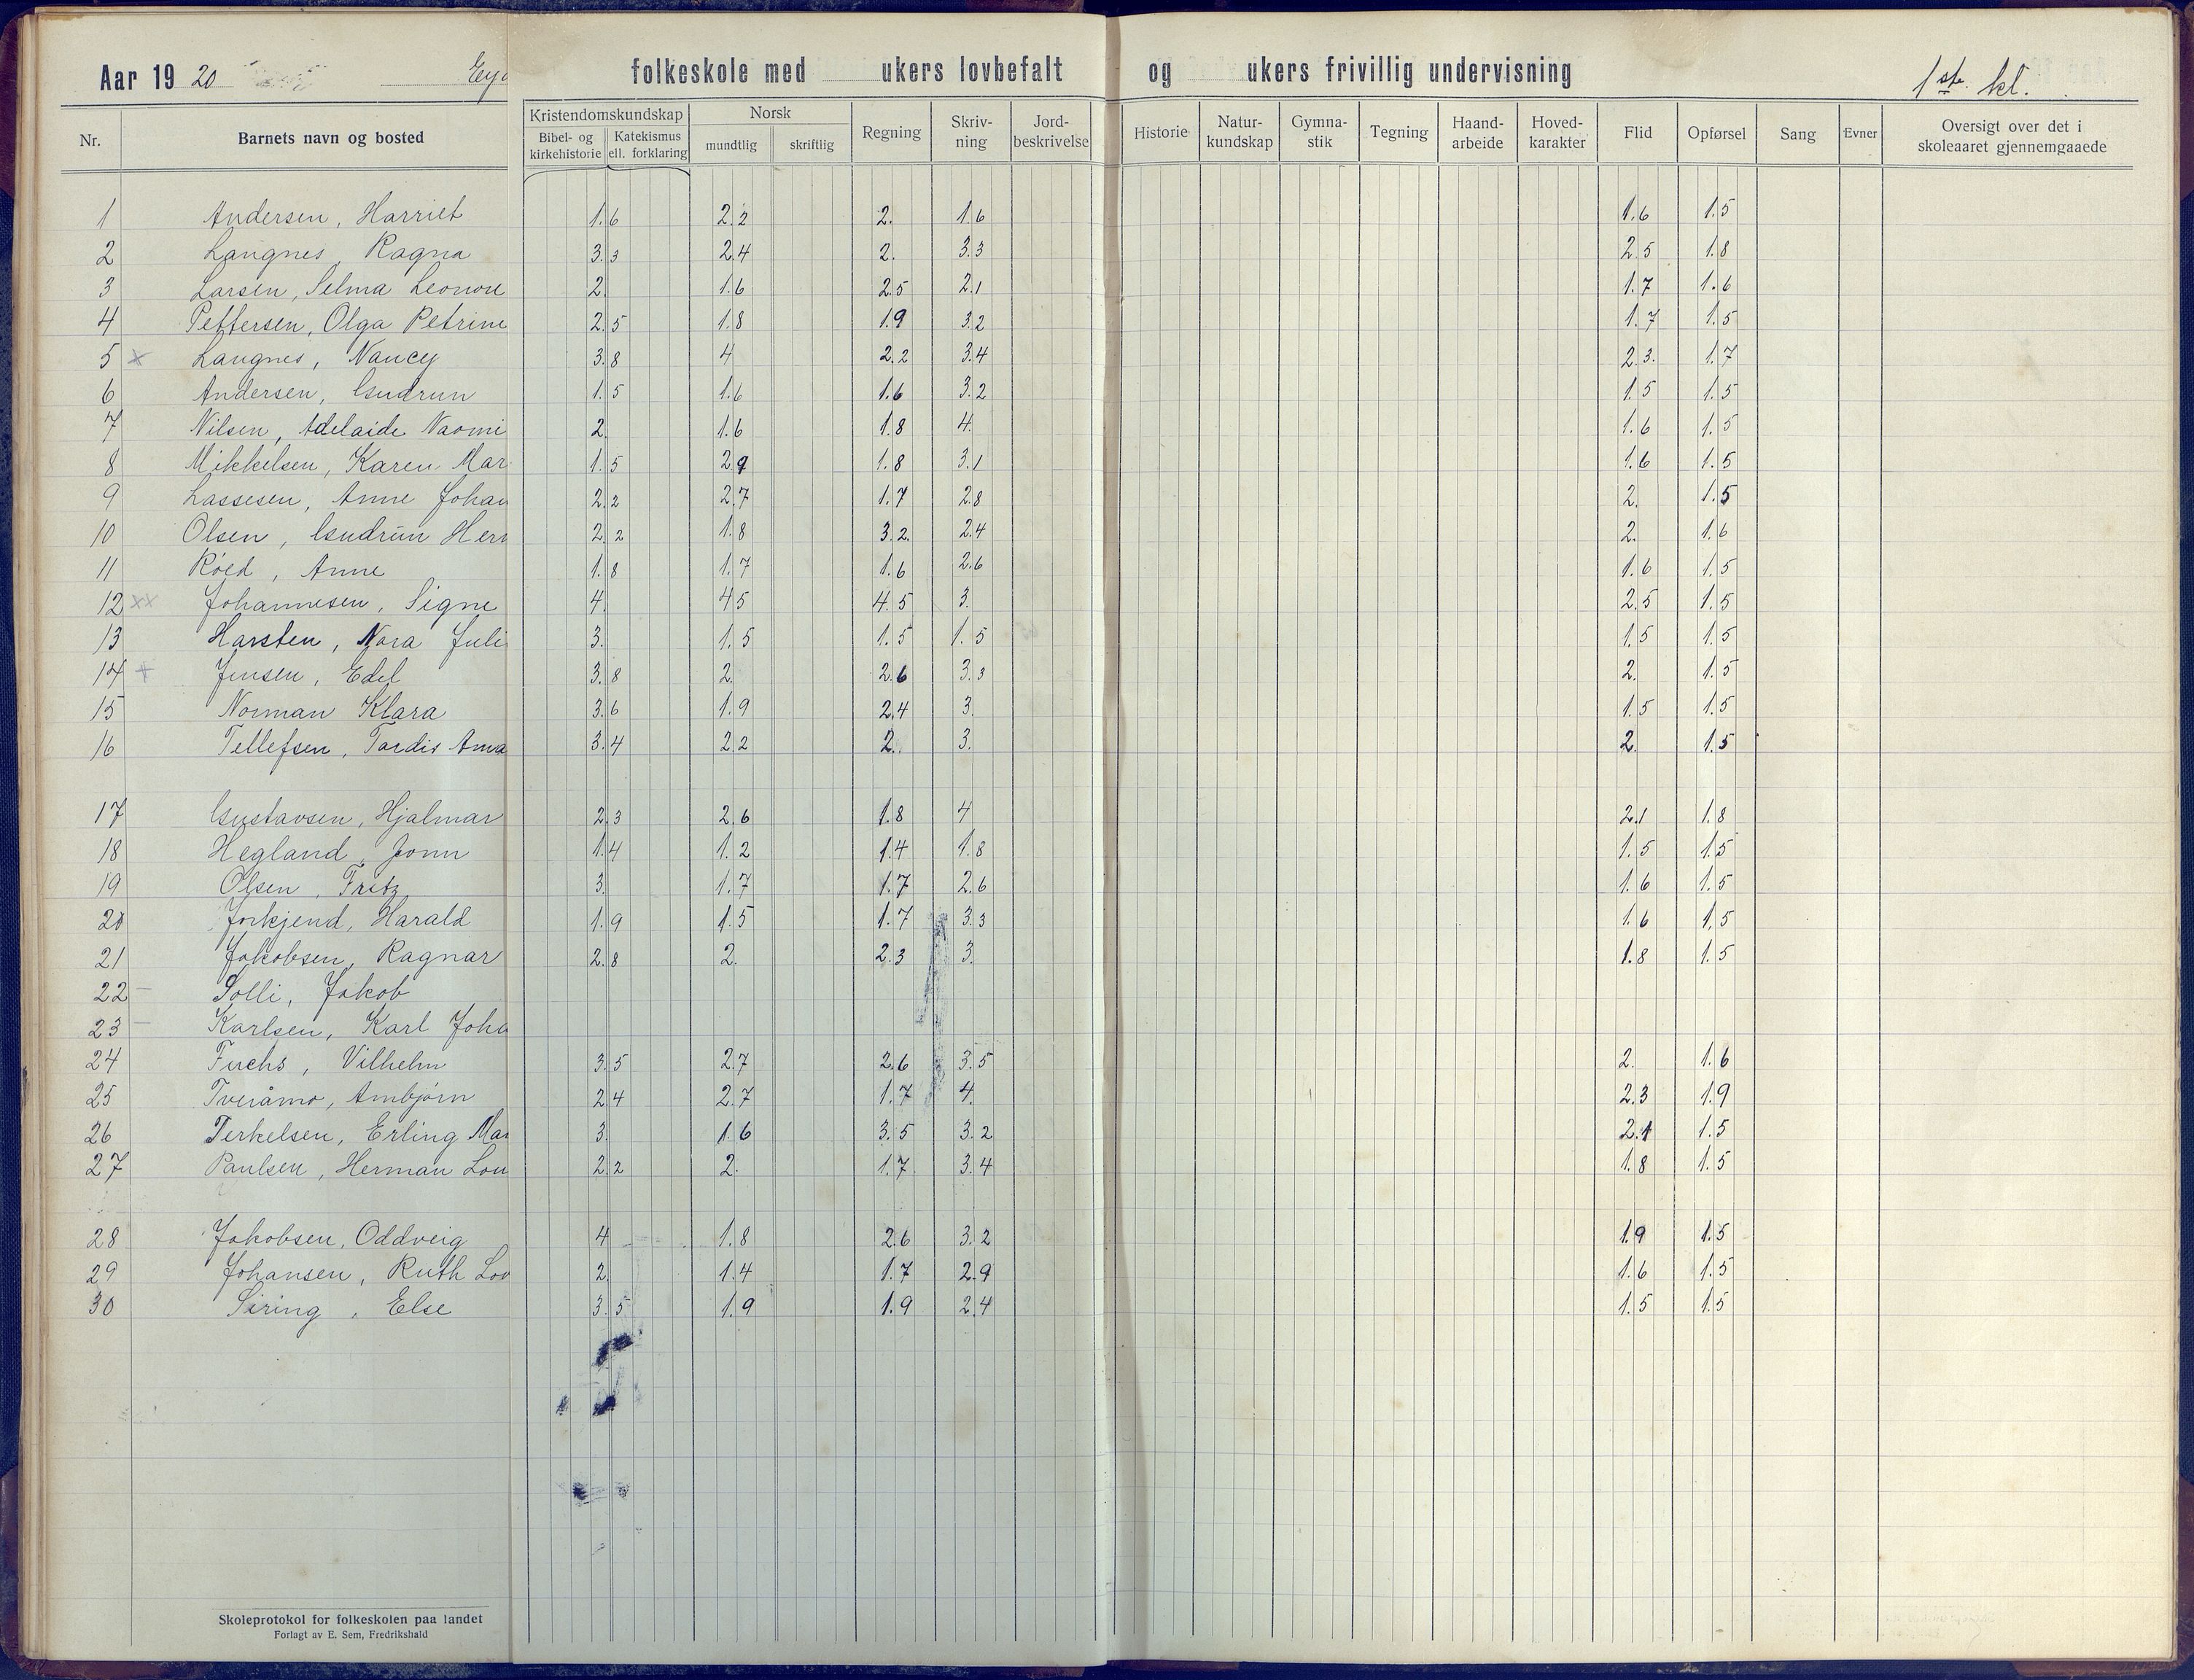 Aar 19 20 folkeskole med ukers lovbefalt og ukers frivillig undervisning 1ste kl.
Nr. Barnets navn og bosted Kristendomskundskap Bibel- og kirkehistorie Katekismus ell. forklaring Norsk mundtlig skriftlig Regning Skriv-ning Jord-beskrivelse Historie Natur-kundskap Gymna-stik Tegning Haand-arbeide Hoved-karakter Flid Opførsel Sang Evner Oversigt over det i skoleaaret gjennemgaaede
1 Andersen, Harriet 1.6 2.2 2. 1.6 1.6 1.5
2 Langnes, Ragna 3.3 2.4 2. 3.3 2.5 1.8
3 Larsen, Selma Leonore 2. 1.6 2.5 2.1 1.7 1.6
4 Pettersen, Olga Petrine 2.5 1.8 1.9 3.2 1.7 1.5
5 x Langnes, Nancy 3.8 4 2.2 3.4 2.3. 1.7
6 Andersen, Gudrun 1.5 1.6 1.6 3.2 1.5 1.5
7 Nilsen, Adelaide Naomi 2. 1.6 1.8 4. 1.6 1.5
8 Mikkelsen, Karen Mar 1.5 2.9 1.8 3.1 1.6 1.5
9 Lassesen, Anne Johan 2.2 2.7 1.7 2.8 2. 1.5
10 Olsen, Gudrun Her 2.2 1.8 3.2. 2.4 2. 1.6
11 Röed, Anne 1.8 1.7 1.6 2.6 1.6 1.5
12 xx Johannesen, Signe 4. 4.5 4.5 3. 2.5 1.5
13 Harsten, Nora Juli 3. 1.5 1.5 1.5 1.5 1.5
14 + Jensen, Edel 3.8 2. 2.6 3.3 2. 1.5
15 Norman Klara 3.6 1.9 2.4 3. 1.5 1.5
16 Tellefsen, Tordis Ama 3.4 2.2 2. 3. 2. 1.5
17 Gustavsen, Hjalmar 2.3 2.6 1.8 4 2.1 1.8
18 Hegland, Jonn 1.4 1.2 1.4 1.8 1.5 1.5
19 Olsen, Fritz 3. 1.7 1.7 2.6 1.6 1.5
20 Jorkjend, Harald 1.9 1.5 1.7 3.3 1.6 1.5
21 Jakobsen, Ragnar 2.8 2. 2.3 3. 1.8 1.5
22 – Solli, Jakob
23 – Karlsen, Karl Joha
24 Fuchs, Vilhelm 3.5 2.7 2.6 3.5 2. 1.6
25 Tveråmo, Arnbjörn 2.4 2.7 1.7 4. 2.3 1.9
26 Terkelsen, Erling Mar 3. 1.6 3.5 3.2 2.1 1.5
27 Paulsen, Herman Lou 2.2 2. 1.7 3.4 1.8 1.5
28 Jakobsen, Oddveig 4 1.8 2.6 3.2 1.9 1.5
29 Johansen, Ruth Lov 2. 1.4 1.7 2.9 1.6 1.5
30 Siring, Else 3.5 1.9 1.9 2.4 1.5 1.5
Skoleprotokol for folkeskolen paa landet
Forlagt av E. Sem, Fredrikshald